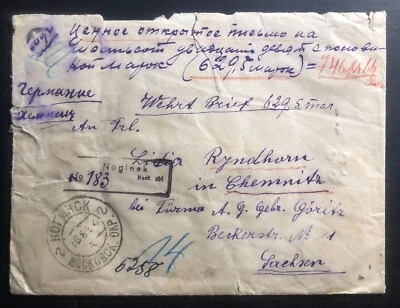 Ценное открытое письмо на
шестьсот двадцать девять с полови-
ной марок (629,5 марок) = 746
Германия
Хемниц
Wehrt Brief 629,5 mar.
An Frl.
Lidia Ryndhorn
Noginsk
Mosk. obl
№ 183
in Chemnitz
bei Firma A. G. Gebr. Göritz
НОГИНСК
МОСКОВСК.
Beckerstr. № 1
6258
24
Sachsen